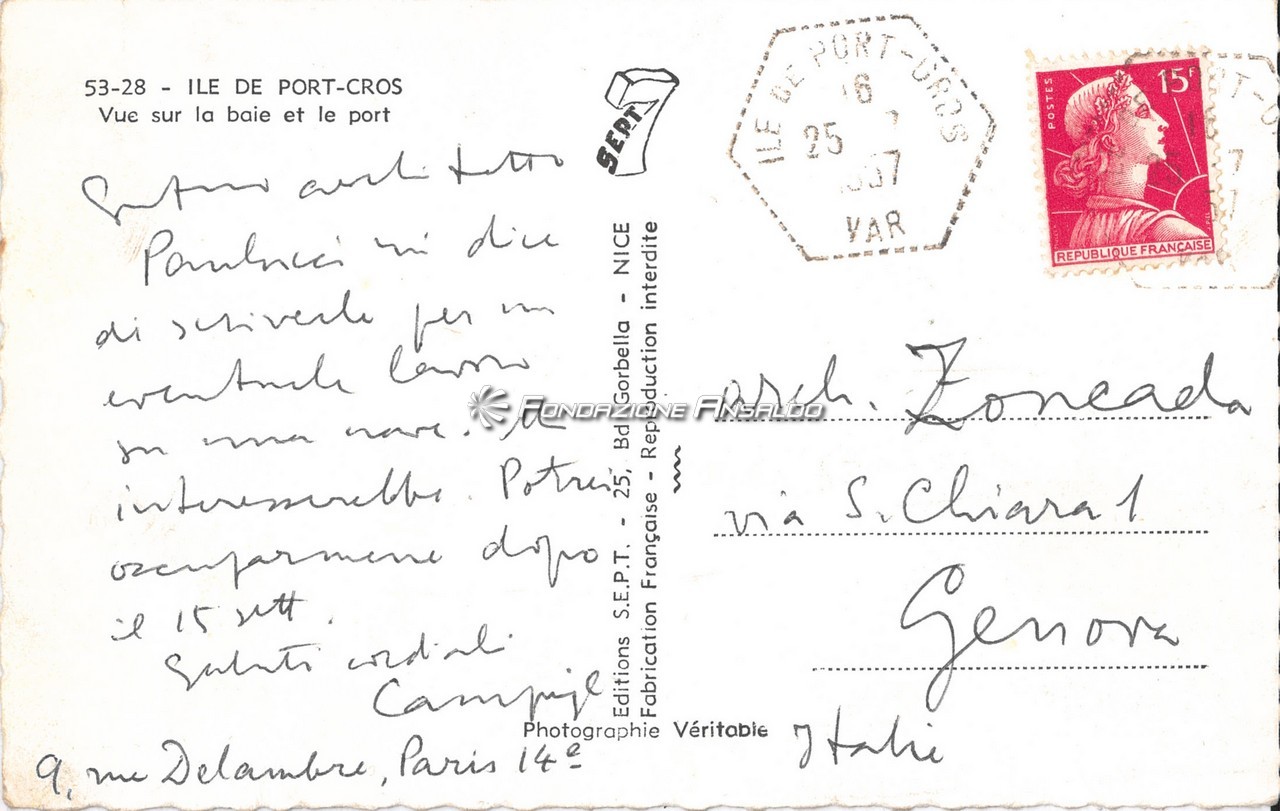 53-28 - ILE DE PORT-CROS
Vue sur la baie et le port
architetto
Paolucci mi dice
di scriverle per un
eventuale lavoro
su una nave. 
interesserebbe. Potrei
occuparmene dopo
il 15 sett.
Saluti cordiali
Campigli
9, rue Delambre, Paris 14e
SEPT 7
Editions S.E.P.T. - 25, Bd Gorbella - NICE
Fabrication Française - Reproduction interdite
Photographie Véritable
ILE DE PORT-CROS
16
25 7
1957
VAR
POSTES
15F
REPUBLIQUE FRANÇAISE
arch. Zoncada
via S. Chiara 1
Genova
Italie
FONDAZIONE ANSALDO